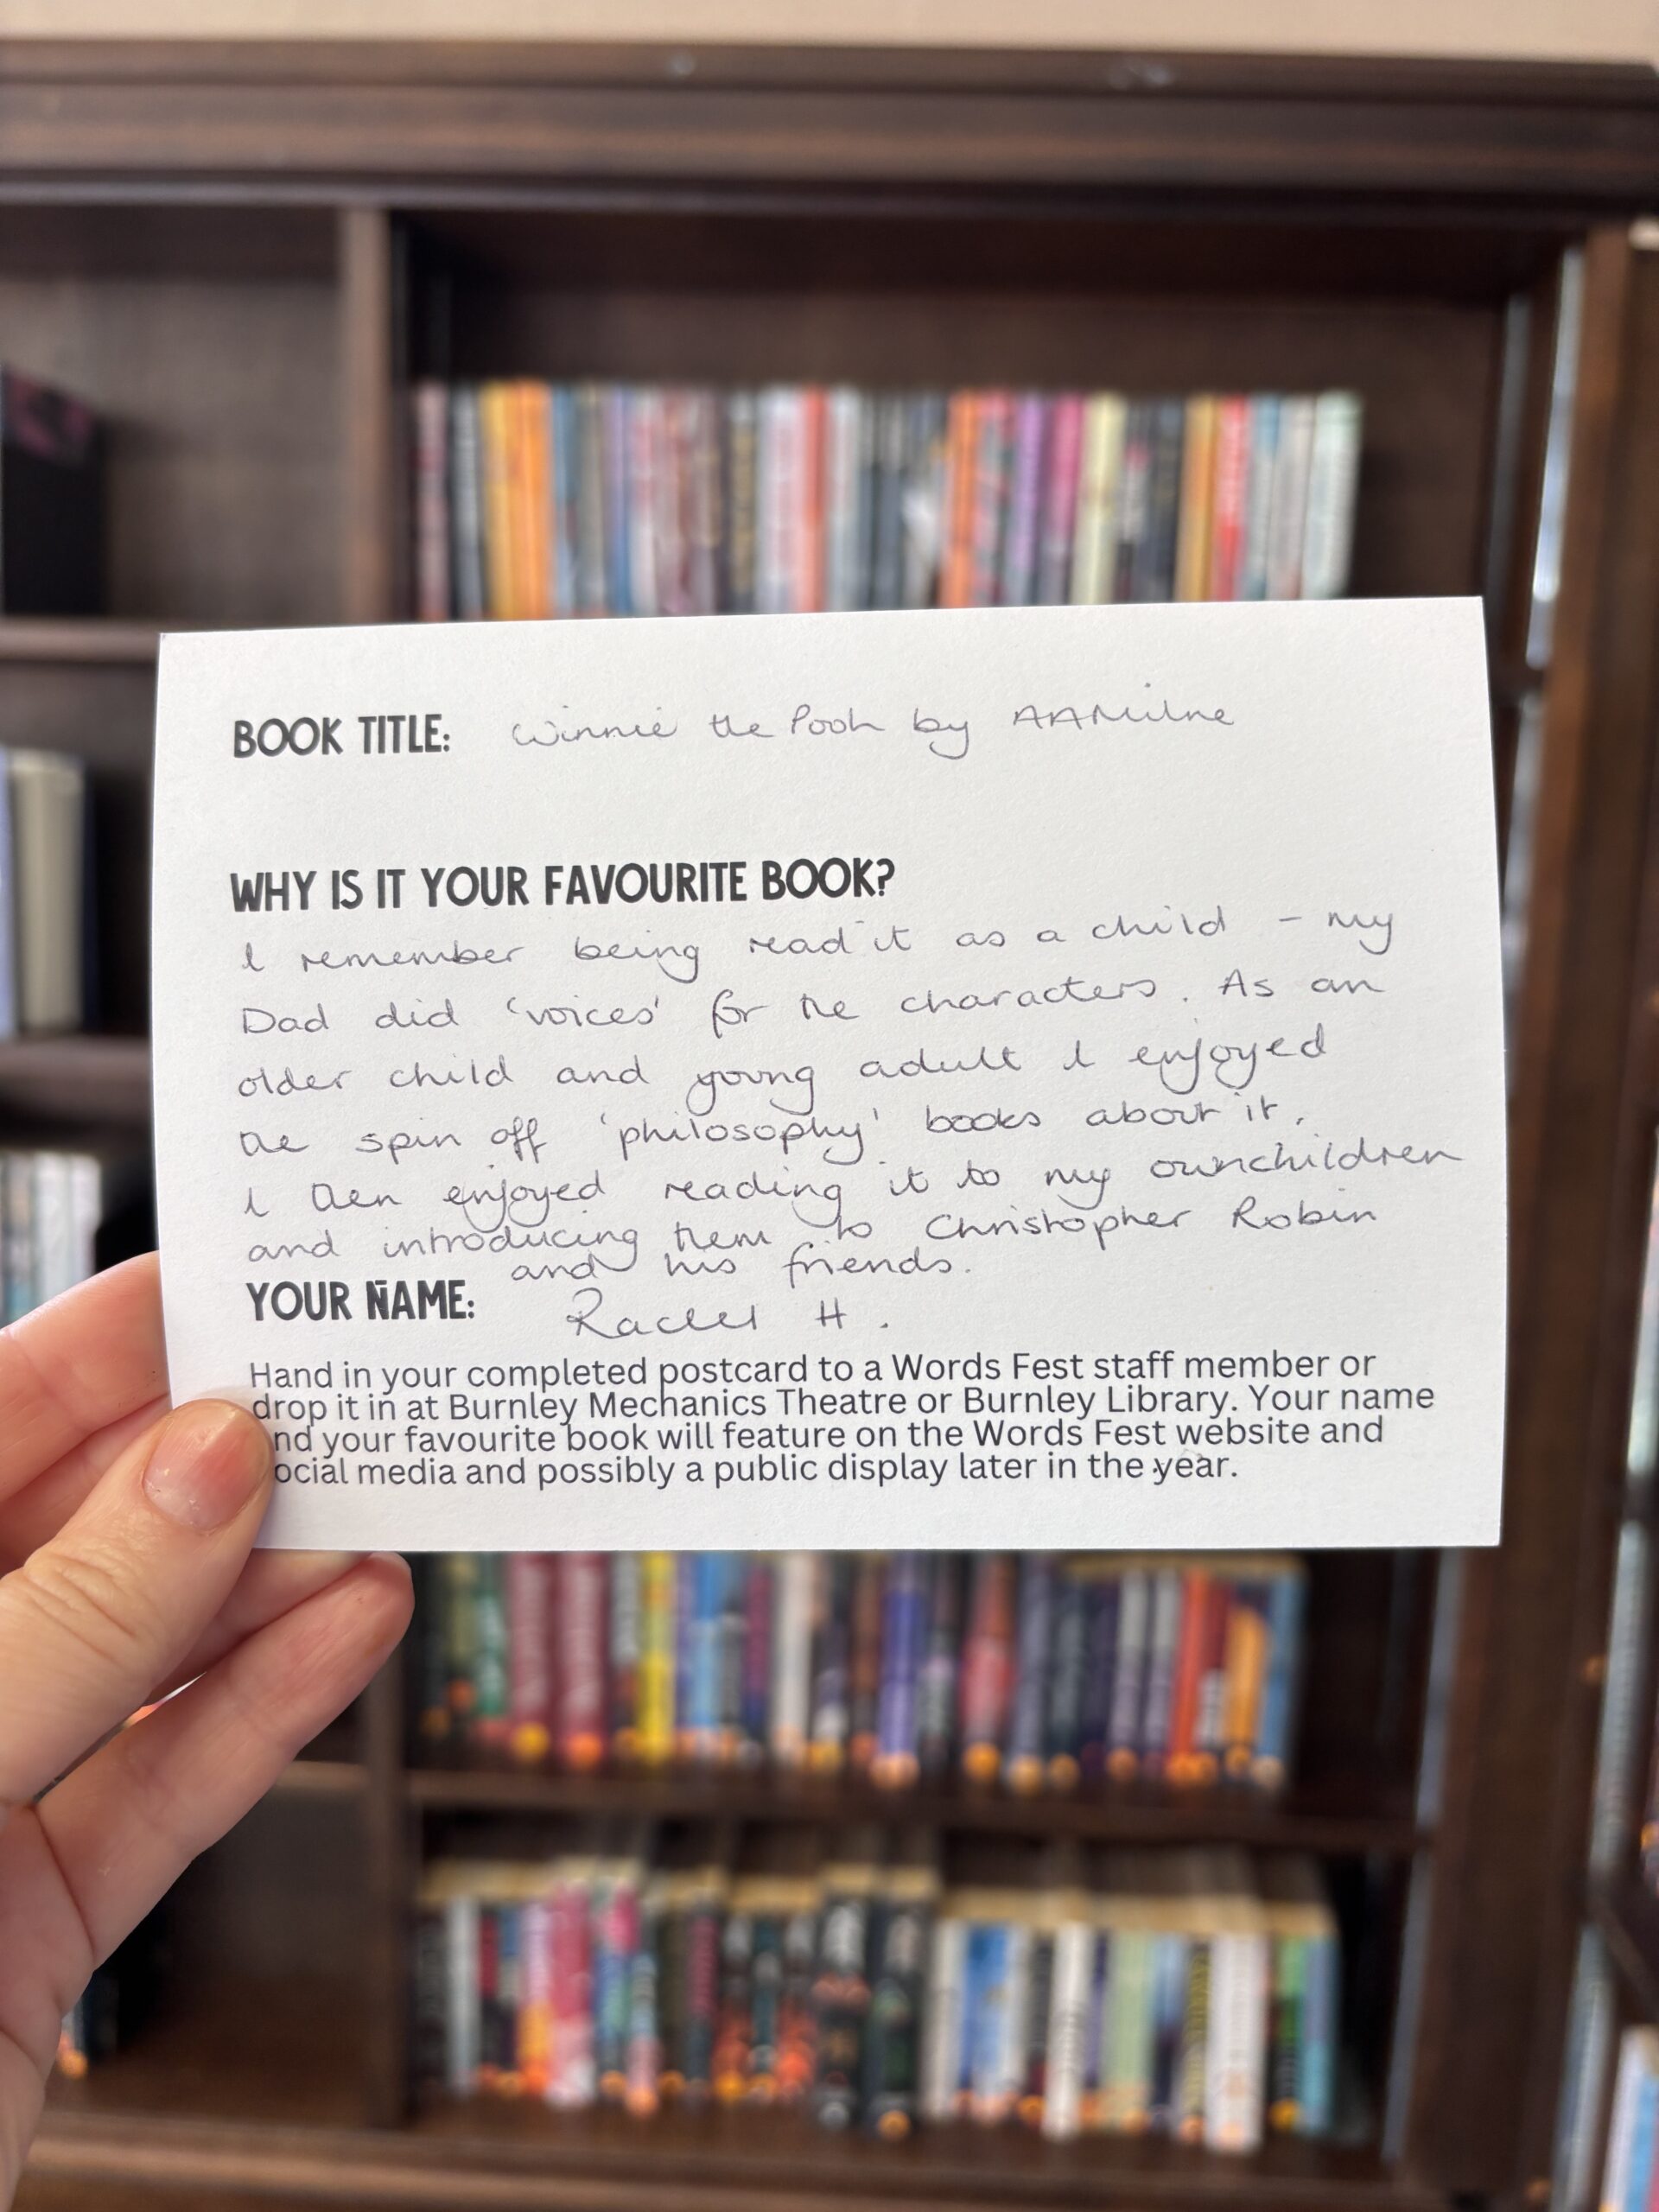 BOOK TITLE: Winnie the Pooh by AA Milne
WHY IS IT YOUR FAVOURITE BOOK?
I remember being read it as a child - my
Dad did 'voices' for the characters. As an
older child and young adult I enjoyed
the spin off 'philosophy' books about it.
I then enjoyed reading it to my own children
and introducing them to Christopher Robin
and his friends.
YOUR NAME: Rachel H.
Hand in your completed postcard to a Words Fest staff member or
drop it in at Burnley Mechanics Theatre or Burnley Library. Your name
nd your favourite book will feature on the Words Fest website and
ocial media and possibly a public display later in the year.